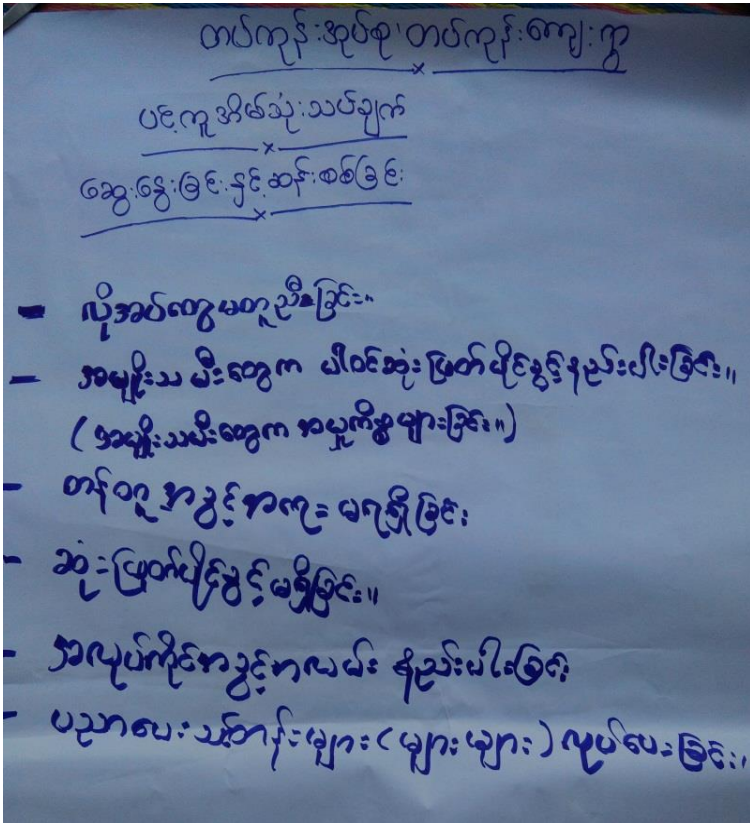 တပ်ကုန်းအုပ်စု၊ တပ်ကုန်းကျေးရွာ
ပင့်ကူအိမ်သုံးသပ်ချက်
ဆွေးနွေးခြင်းနှင့်ဆန်းစစ်ခြင်း
- လိုအပ်တွေမတူညီခြင်း။
- အမျိုးသမီးတွေက ပါဝင်ဆုံးဖြတ်ပိုင်ခွင့်နည်းပါးခြင်း။
(အမျိုးသမီးတွေက အမှုကိစ္စများခြင်း။)
- တန်းတူအခွင့်အရေး မရရှိခြင်း
- ဆုံးဖြတ်ပိုင်ခွင့်မရှိခြင်း။
- အလုပ်ကိုင်အခွင့်အလမ်း နည်းပါးခြင်း
- ပညာပေးသင်တန်းများ (များများ) လုပ်ပေးခြင်း။